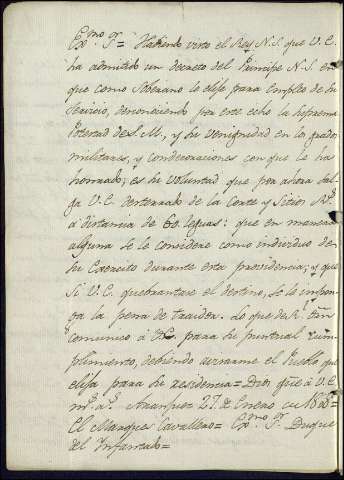 Ex.mo S.r = Haviendo visto el Rey N.S. que V.E.
ha admitido un decreto del Principe N.S. en
que como Soberano lo elije para empleo de su
Servicio, desconociendo por este echo la suprema
Potestad de S.M., y su venignidad en los grados
militares, y condecoraciones con que le ha
honrado; es su voluntad que por ahora sal-
ga V.E. desterrado de la Corte y Sitios R.s
a distancia de 60. leguas: que en manera
alguna se le considere como individuo de
su Exercito durante esta providencia; y que
si V.E. quebrantare el destino, se le impon-
ga la pena de traidor. Lo que de R.l
comunico à V.E. para su puntual cum-
plimiento, debiendo avisarme el Pueblo que
elija para su residencia = Dios que à V.E.
m.s a.s Aranjuez 27. de Enero de
El Marques Cavallero = Ex.mo S.r Duque
del Infantado =